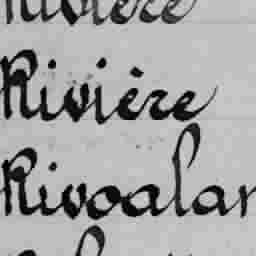 Rivière
Rivière
Rivoalan